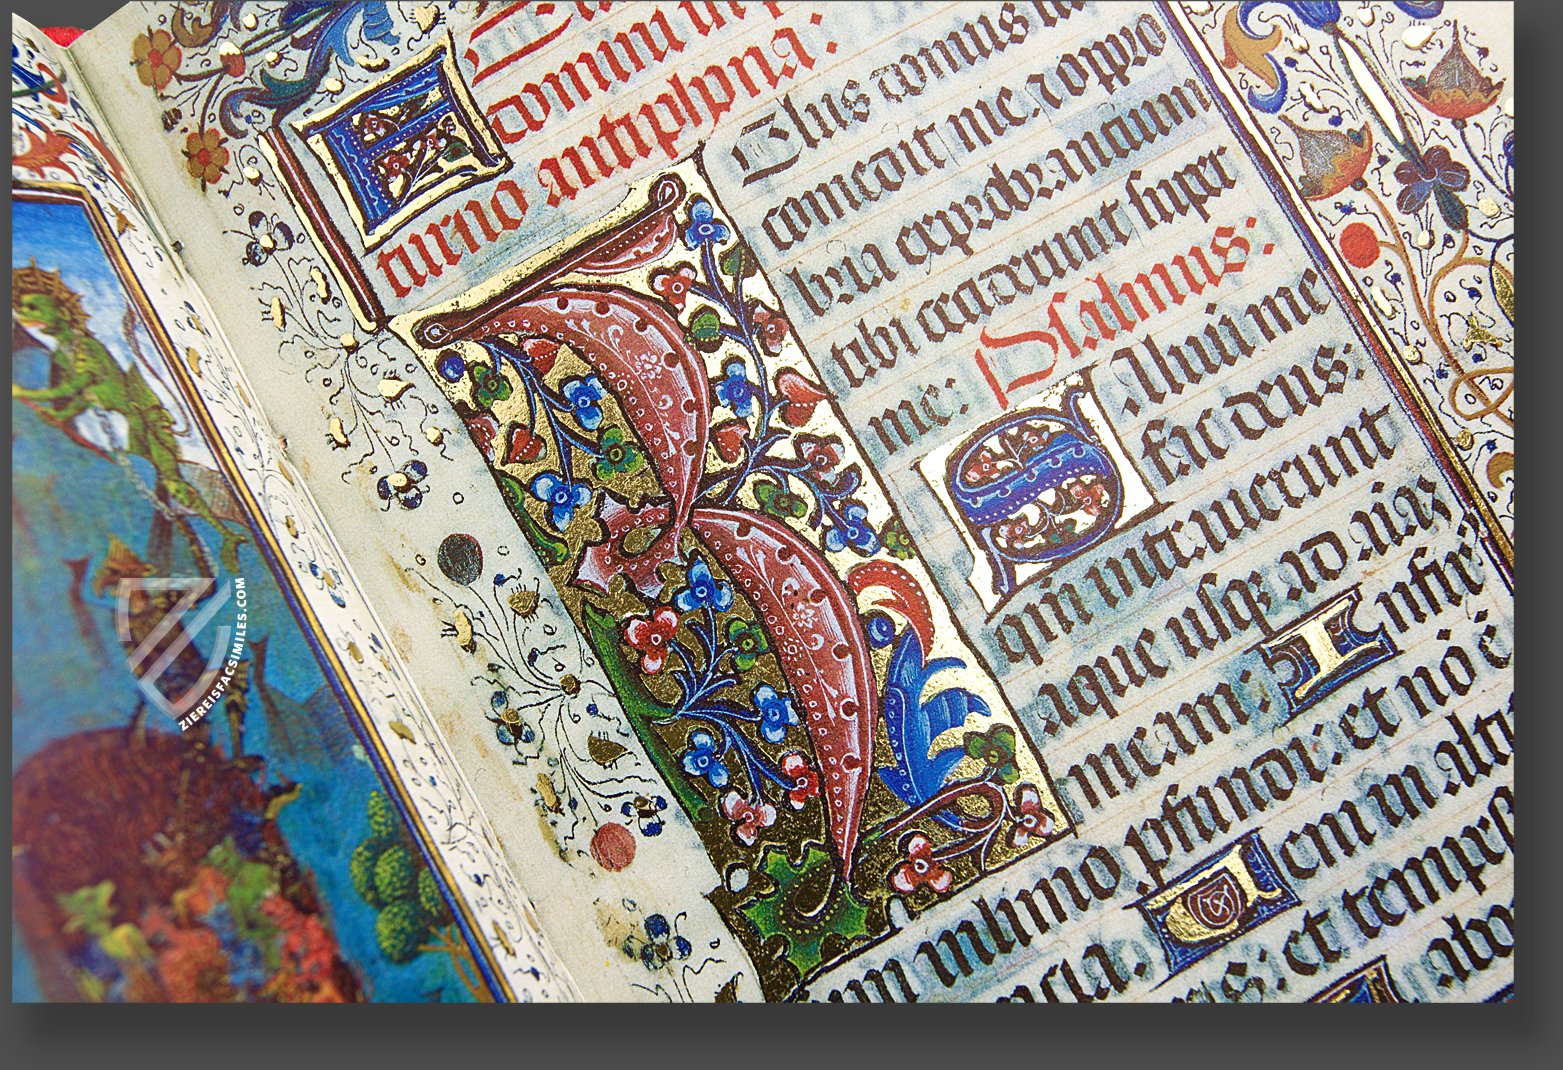 dominu in p
turno antiphona:
Zelus domus tu
comedit me. et oppro
bria exprobrantium
tibi ceciderunt super
me: Psalmus:
Saluū me
fac deus:
qm̄ intrauerunt
aque usqȝ ad aīaʒ
meam: Infix
um in limo pfundi: et nō ē
ncia. Ueni in altit
ris: et tempes
abo
ZIEREISFACSIMILES.COM